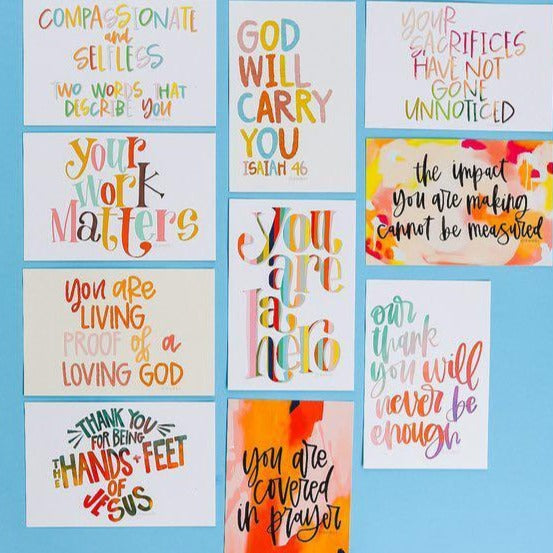 COMPASSIONATE
and
SELFLESS
TWO WORDS THAT
DESCRIBE YOU
your
work
Matters
you are
LIVING
PROOF of a
LOVING GOD
THANK YOU
FOR BEING
THE HANDS + FEET
OF
JESUS
GOD
WILL
CARRY
YOU
ISAIAH 46
you
are
a
hero
you are
covered
in prayer
YOUR
SACRIFICES
HAVE NOT
GONE
UNNOTICED
the impact
you are making
cannot be measured
our
thank
you will
never be
enough